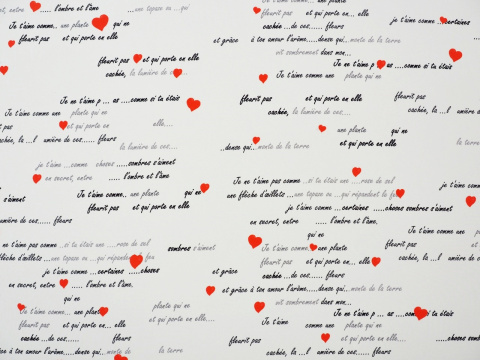 t, entre ..... l'ombre et l'âme ...une topaze ou ...qui
Je t'aime comme... une plante qui ne
fleurit pas et qui porte en elle
je t'aime comme ...certaines ....
et grâce à ton amour l'arôme....dense qui...monte de la terre
vit sombrement dans mon...
fleurit pas et qui porte en elle
Je t'aime p ... as ....comme si tu étais
cachée, la lumière de ces...
Je t'aime comme une plante qui ne
Je ne t'aime p ... as ....comme si tu étais
fleurit pas et qui porte en elle
fleurit pas et qui
Je t'aime comme une plante qui ne
cachée, la lumière de ces...... fleurs
cachée, la ...l umière de
t pas et qui porte en elle elle....
une plante qui ne
achée, la ...l umière de ces...... fleurs
...dense qui...monte de la terre et qui porte en elle
la lumière de ces......
la terre
je t'aime comme choses .....sombres s'aiment
en secret, entre ..... l'ombre et l'âme.
Je ne t'aime pas comme ...si tu étais une ....rose de sel
Je t'aime comme
Je t'aime comme... une plante qui ne
une flèche d'œillets ...une topaze ou ...qui répandent le feu
s'aiment fleurit pas et qui porte en elle
je t'aime comme ...certaines .....choses sombres s'aiment
umière de ces...... fleurs
en secret, entre ..... l'ombre et l'âme.
Je t'aime comme une
qui ne
ne t'aime pas comme ...si tu étais une ....rose de sel
sombres s'aiment
Je t'aime comme... une plante
fleurit pas et
flèche d'œillets ...une topaze ou ...qui répandent le feu
fleurit pas et qui porte en elle
je t'aime comme ...certaines .....choses
et grâce cachée ...de ces...... fleurs
en secret, entre ..... l'ombre et l'âme.
et grâce à ton amour l'arôme....dense qui...monte de la terre
qui ne
vit sombrement dans mon...
Je t'aime comme... une plante plante qui ne
Je t'aime p ... as ....comme si tu étais
et qui porte en elle....
fleurit pas et qui porte en... elle
Je t'aime comme une plante qui ne
fleurit pas et qui porte en elle
cachée ...de ces...... fleurs
fleurit pas
....choses
ce à ton amour l'arôme....dense qui...monte de la terre
cachée, la ...l umière de ces...... fleurs